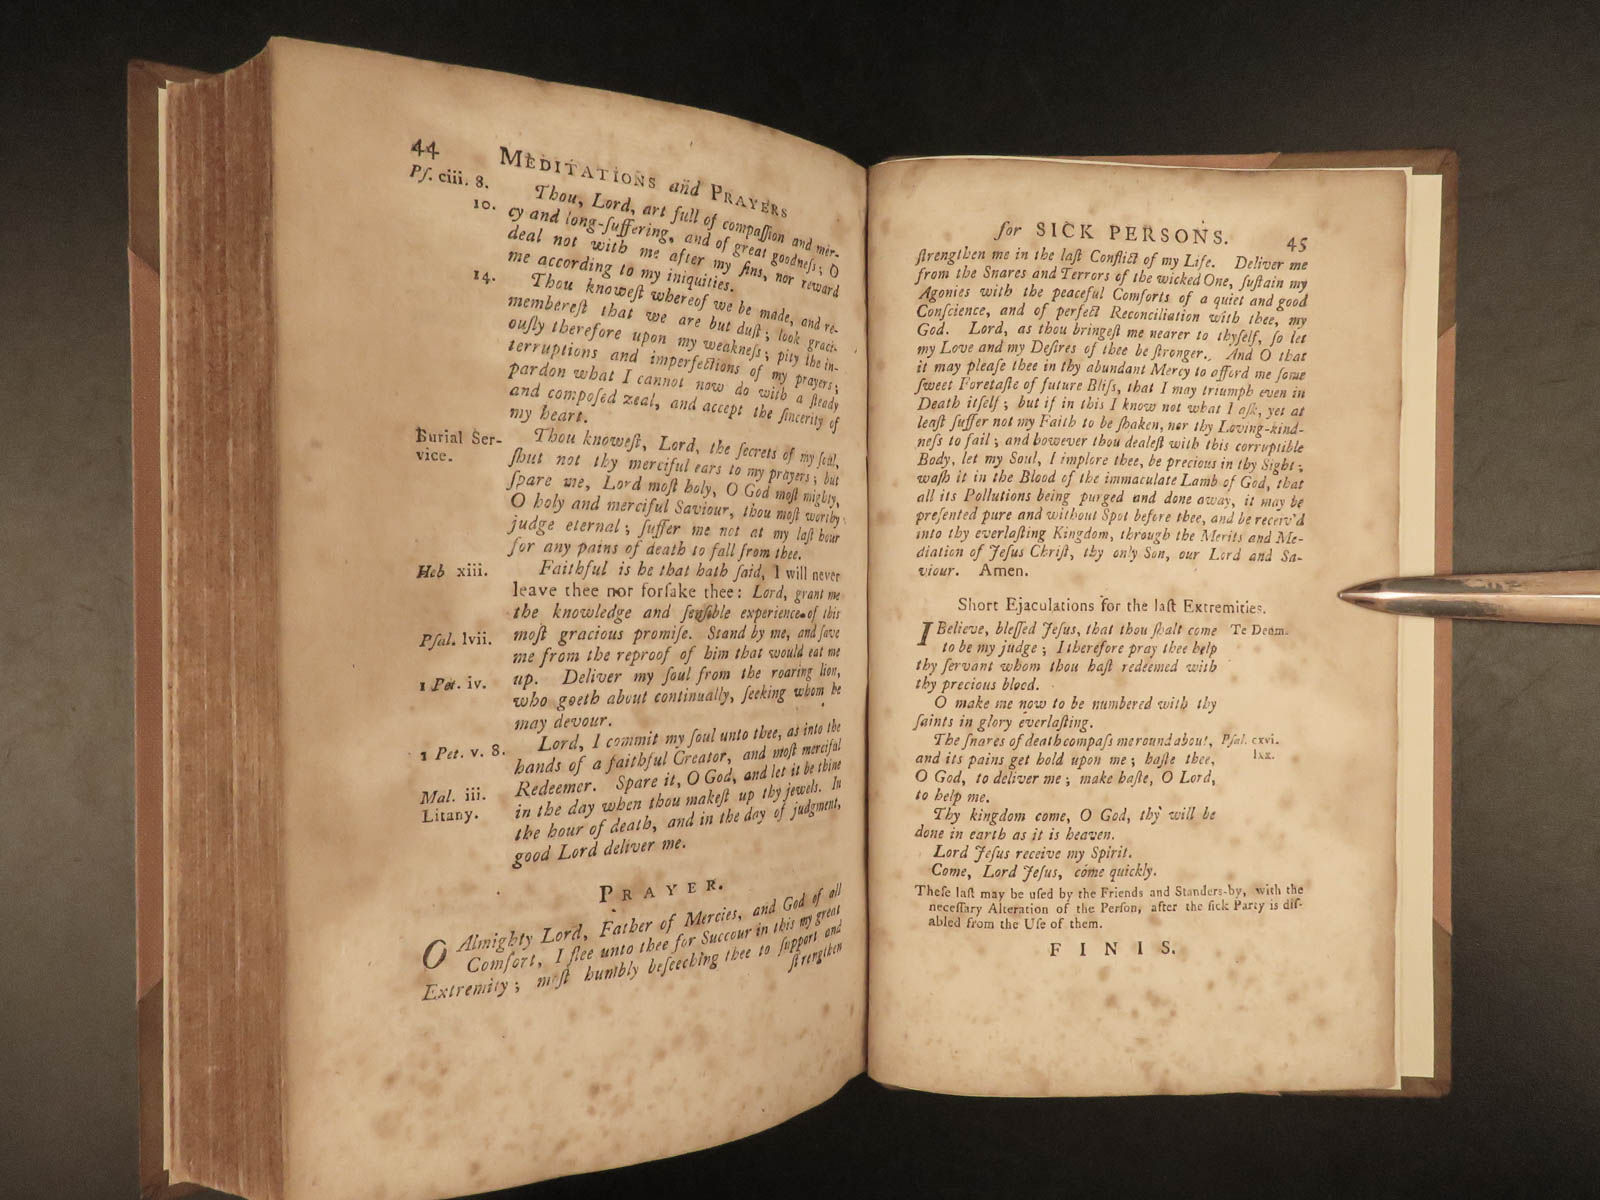 44 MEDITATIONS and PRAYERS
Pſ. ciii. 8. Thou, Lord, art full of compaſſion and mer-
10. cy and long-ſuffering, and of great goodneſs; O
deal not with me after my ſins, nor reward
me according to my iniquities.
14. Thou knoweſt whereof we be made, and re-
membereſt that we are but duſt; look graci-
ouſly therefore upon my weakneſs; pity the in-
terruptions and imperfections of my prayers;
pardon what I cannot now do with a ſteady
and compoſed zeal, and accept the ſincerity of
my heart.
Burial Ser- Thou knoweſt, Lord, the ſecrets of my ſoul,
vice. ſhut not thy merciful ears to my prayers; but
ſpare me, Lord moſt holy, O God moſt mighty,
O holy and merciful Saviour, thou moſt worthy
judge eternal; ſuffer me not at my laſt hour
for any pains of death to fall from thee.
Heb xiii. Faithful is he that hath ſaid, I will never
leave thee nor forſake thee: Lord, grant me
the knowledge and ſenſible experience of this
Pſal. lvii. moſt gracious promiſe. Stand by me, and ſave
me from the reproof of him that would eat me
1 Pet. iv. up. Deliver my ſoul from the roaring lion,
who goeth about continually, ſeeking whom he
may devour.
1 Pet. v. 8. Lord, I commit my ſoul unto thee, as into the
hands of a faithful Creator, and moſt merciful
Mal. iii. Redeemer. Spare it, O God, and let it be thine
Litany. in the day when thou makeſt up thy jewels. In
the hour of death, and in the day of judgment,
good Lord deliver me.
PRAYER.
O Almighty Lord, Father of Mercies, and God of all
Comfort, I flee unto thee for Succour in this my great
Extremity; moſt humbly beſeeching thee to ſupport and
ſtrengthen
for SICK PERSONS. 45
ſtrengthen me in the laſt Conflict of my Life. Deliver me
from the Snares and Terrors of the wicked One, ſuſtain my
Agonies with the peaceful Comforts of a quiet and good
Conſcience, and of perfect Reconciliation with thee, my
God. Lord, as thou bringeſt me nearer to thyſelf, ſo let
my Love and my Deſires of thee be ſtronger. And O that
it may pleaſe thee in thy abundant Mercy to afford me ſome
ſweet Foretaſte of future Bliſs, that I may triumph even in
Death itſelf; but if in this I know not what I aſk, yet at
leaſt ſuffer not my Faith to be ſhaken, nor thy Loving-kind-
neſs to fail; and however thou dealeſt with this corruptible
Body, let my Soul, I implore thee, be precious in thy Sight;
waſh it in the Blood of the immaculate Lamb of God, that
all its Pollutions being purged and done away, it may be
preſented pure and without Spot before thee, and be receiv'd
into thy everlaſting Kingdom, through the Merits and Me-
diation of Jeſus Chriſt, thy only Son, our Lord and Sa-
viour. Amen.
Short Ejaculations for the laſt Extremities.
I Believe, bleſſed Jeſus, that thou ſhalt come Te Deum.
to be my judge; I therefore pray thee help
thy ſervant whom thou haſt redeemed with
thy precious blood.
O make me now to be numbered with thy
ſaints in glory everlaſting.
The ſnares of death compaſs me round about, Pſal. cxvi.
and its pains get hold upon me; haſte thee, lxx.
O God, to deliver me; make haſte, O Lord,
to help me.
Thy kingdom come, O God, thy will be
done in earth as it is heaven.
Lord Jeſus receive my Spirit.
Come, Lord Jeſus, come quickly.
Theſe laſt may be uſed by the Friends and Standers-by, with the
neceſſary Alteration of the Perſon, after the ſick Party is diſ-
abled from the Uſe of them.
FINIS.